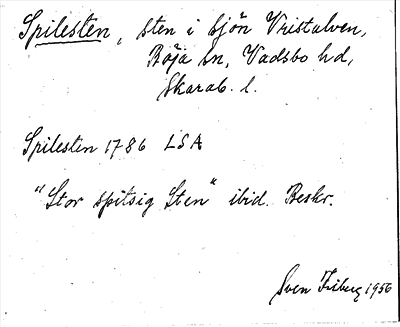 Spilesten, sten i sjön Vristulven,
Böja sn, Vadsbo hd,
Skarab. l.
Spilesten 1786 LSA
"Stor spitsig Sten" ibid. Beskr.
Sven Friberg 1956